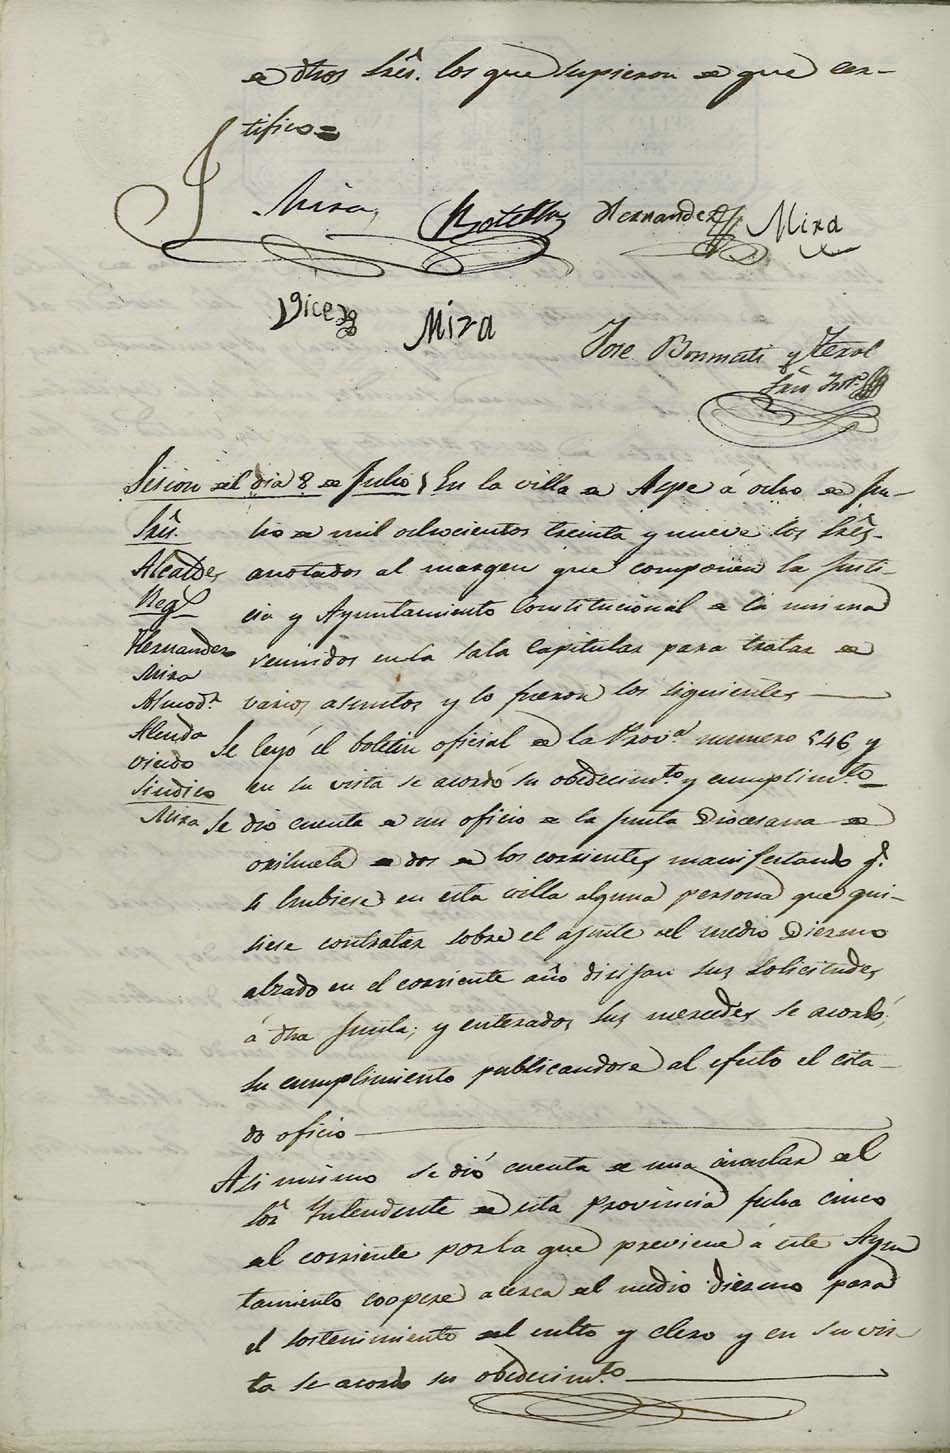 de dhos Sres. los que supieron de que cer-
tifico=
Mira Botella Hernandez Mira
Vicedo Mira
Jose Bonmati y Terol
Srio Intº
Sesion del dia 8 de Julio
Sres.
Alcalde
Regs
Hernandez
Mira
Almodr
Alenda
Vicedo
Sindico
Mira
En la villa de Aspe á ocho de Ju-
lio de mil ochocientos treinta y nueve los Sres.
anotados al margen que componen la Justi-
cia y Ayuntamiento Constitucional de la misma
reunidos en la sala Capitular para tratar de
varios asuntos y lo fueron los siguientes
Se leyó el boletin oficial de la Provª numero 546 y
en su vista se acordó su obedecimto y cumplimto
Se dio cuenta de un oficio de la Junta Diocesana de
orihuela de dos de los corrientes manifestando q.
si hubiese en esta villa alguna persona que qui-
siese contratar sobre el ajuste del medio Diezmo
alzado en el corriente año dirijan sus solicitudes
á dha Junta; y enterados sus mercedes se acordó
su cumplimiento publicandose al efecto el cita-
do oficio
Asi mismo se dió cuenta de una circular del
Sor Yntendente de esta Provincia fecha cinco
del corriente por la que previene á este Ayun
tamiento coopere acerca del medio diezmo para
el sostenimiento del culto y clero y en su vis-
ta se acordo su obedecimto